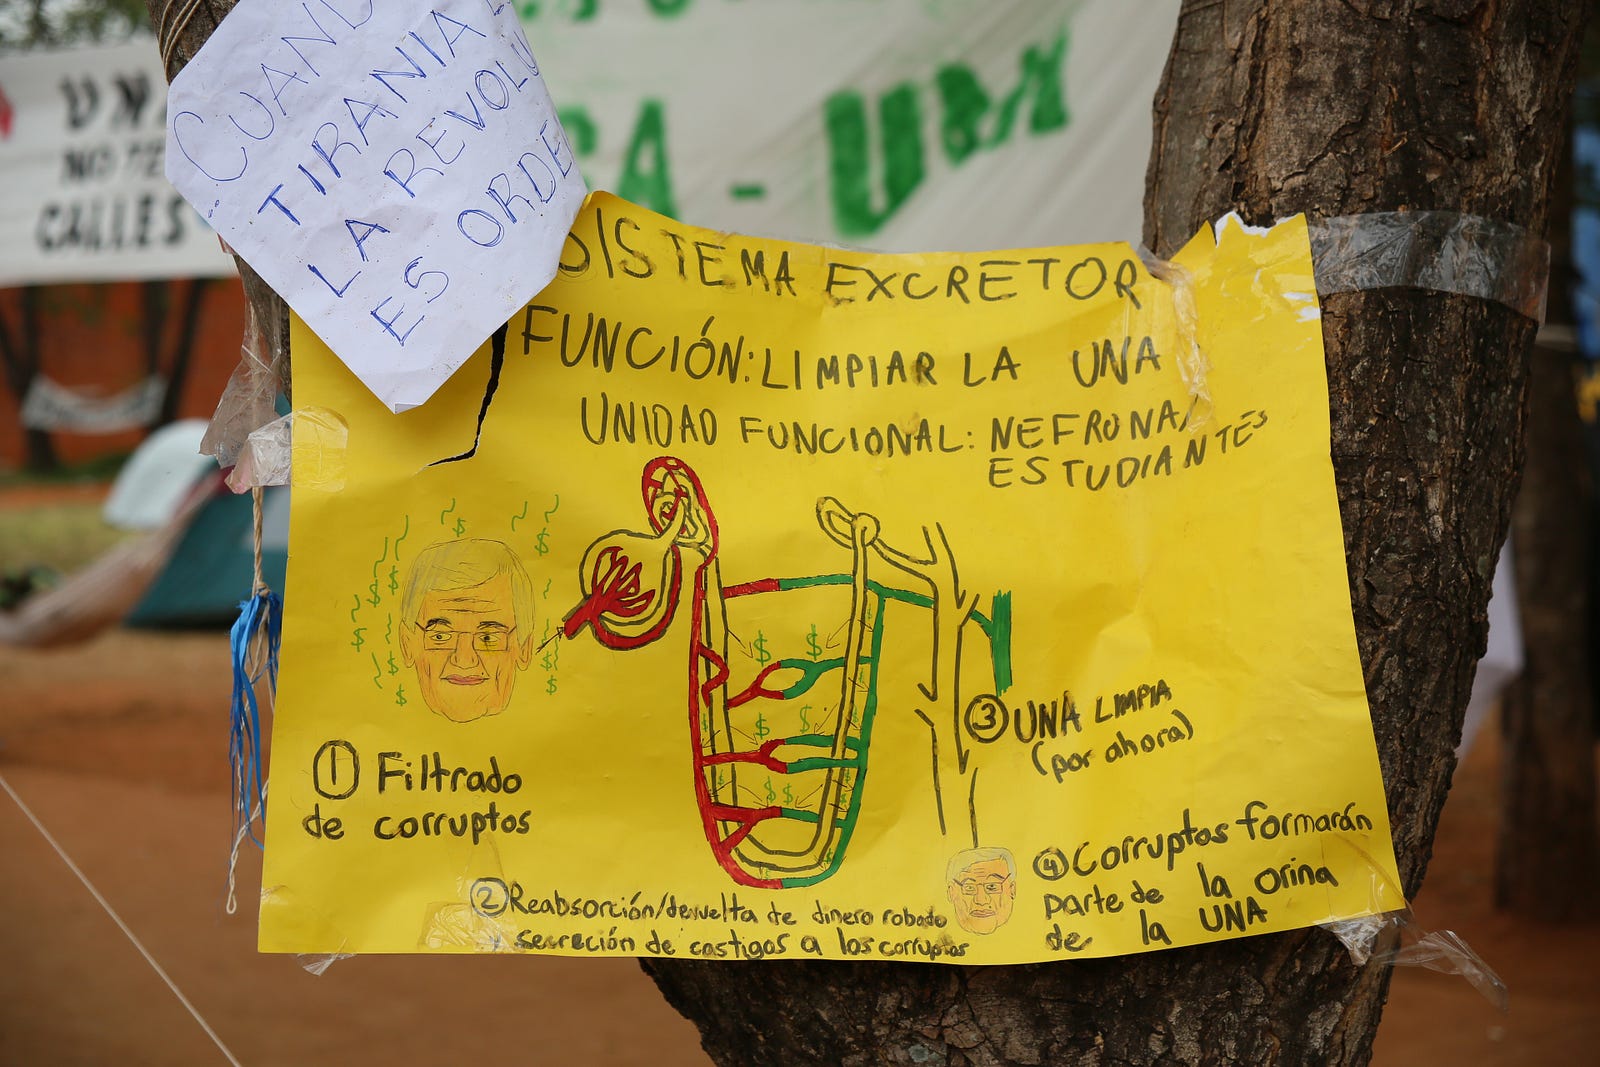 CUAND
TIRANIA
LA REVOLU
ES ORDE
UNA
CALLES
SA - UNA
SISTEMA EXCRETOR
FUNCIÓN: LIMPIAR LA UNA
UNIDAD FUNCIONAL: NEFRONA,
ESTUDIANTES
$ $ $ $ $ $
① Filtrado
de corruptos
③ UNA LIMPIA
(por ahora)
② Reabsorción/devuelta de dinero robado
y secreción de castigos a los corruptos
④ Corruptos formarán
parte de la orina
de la UNA